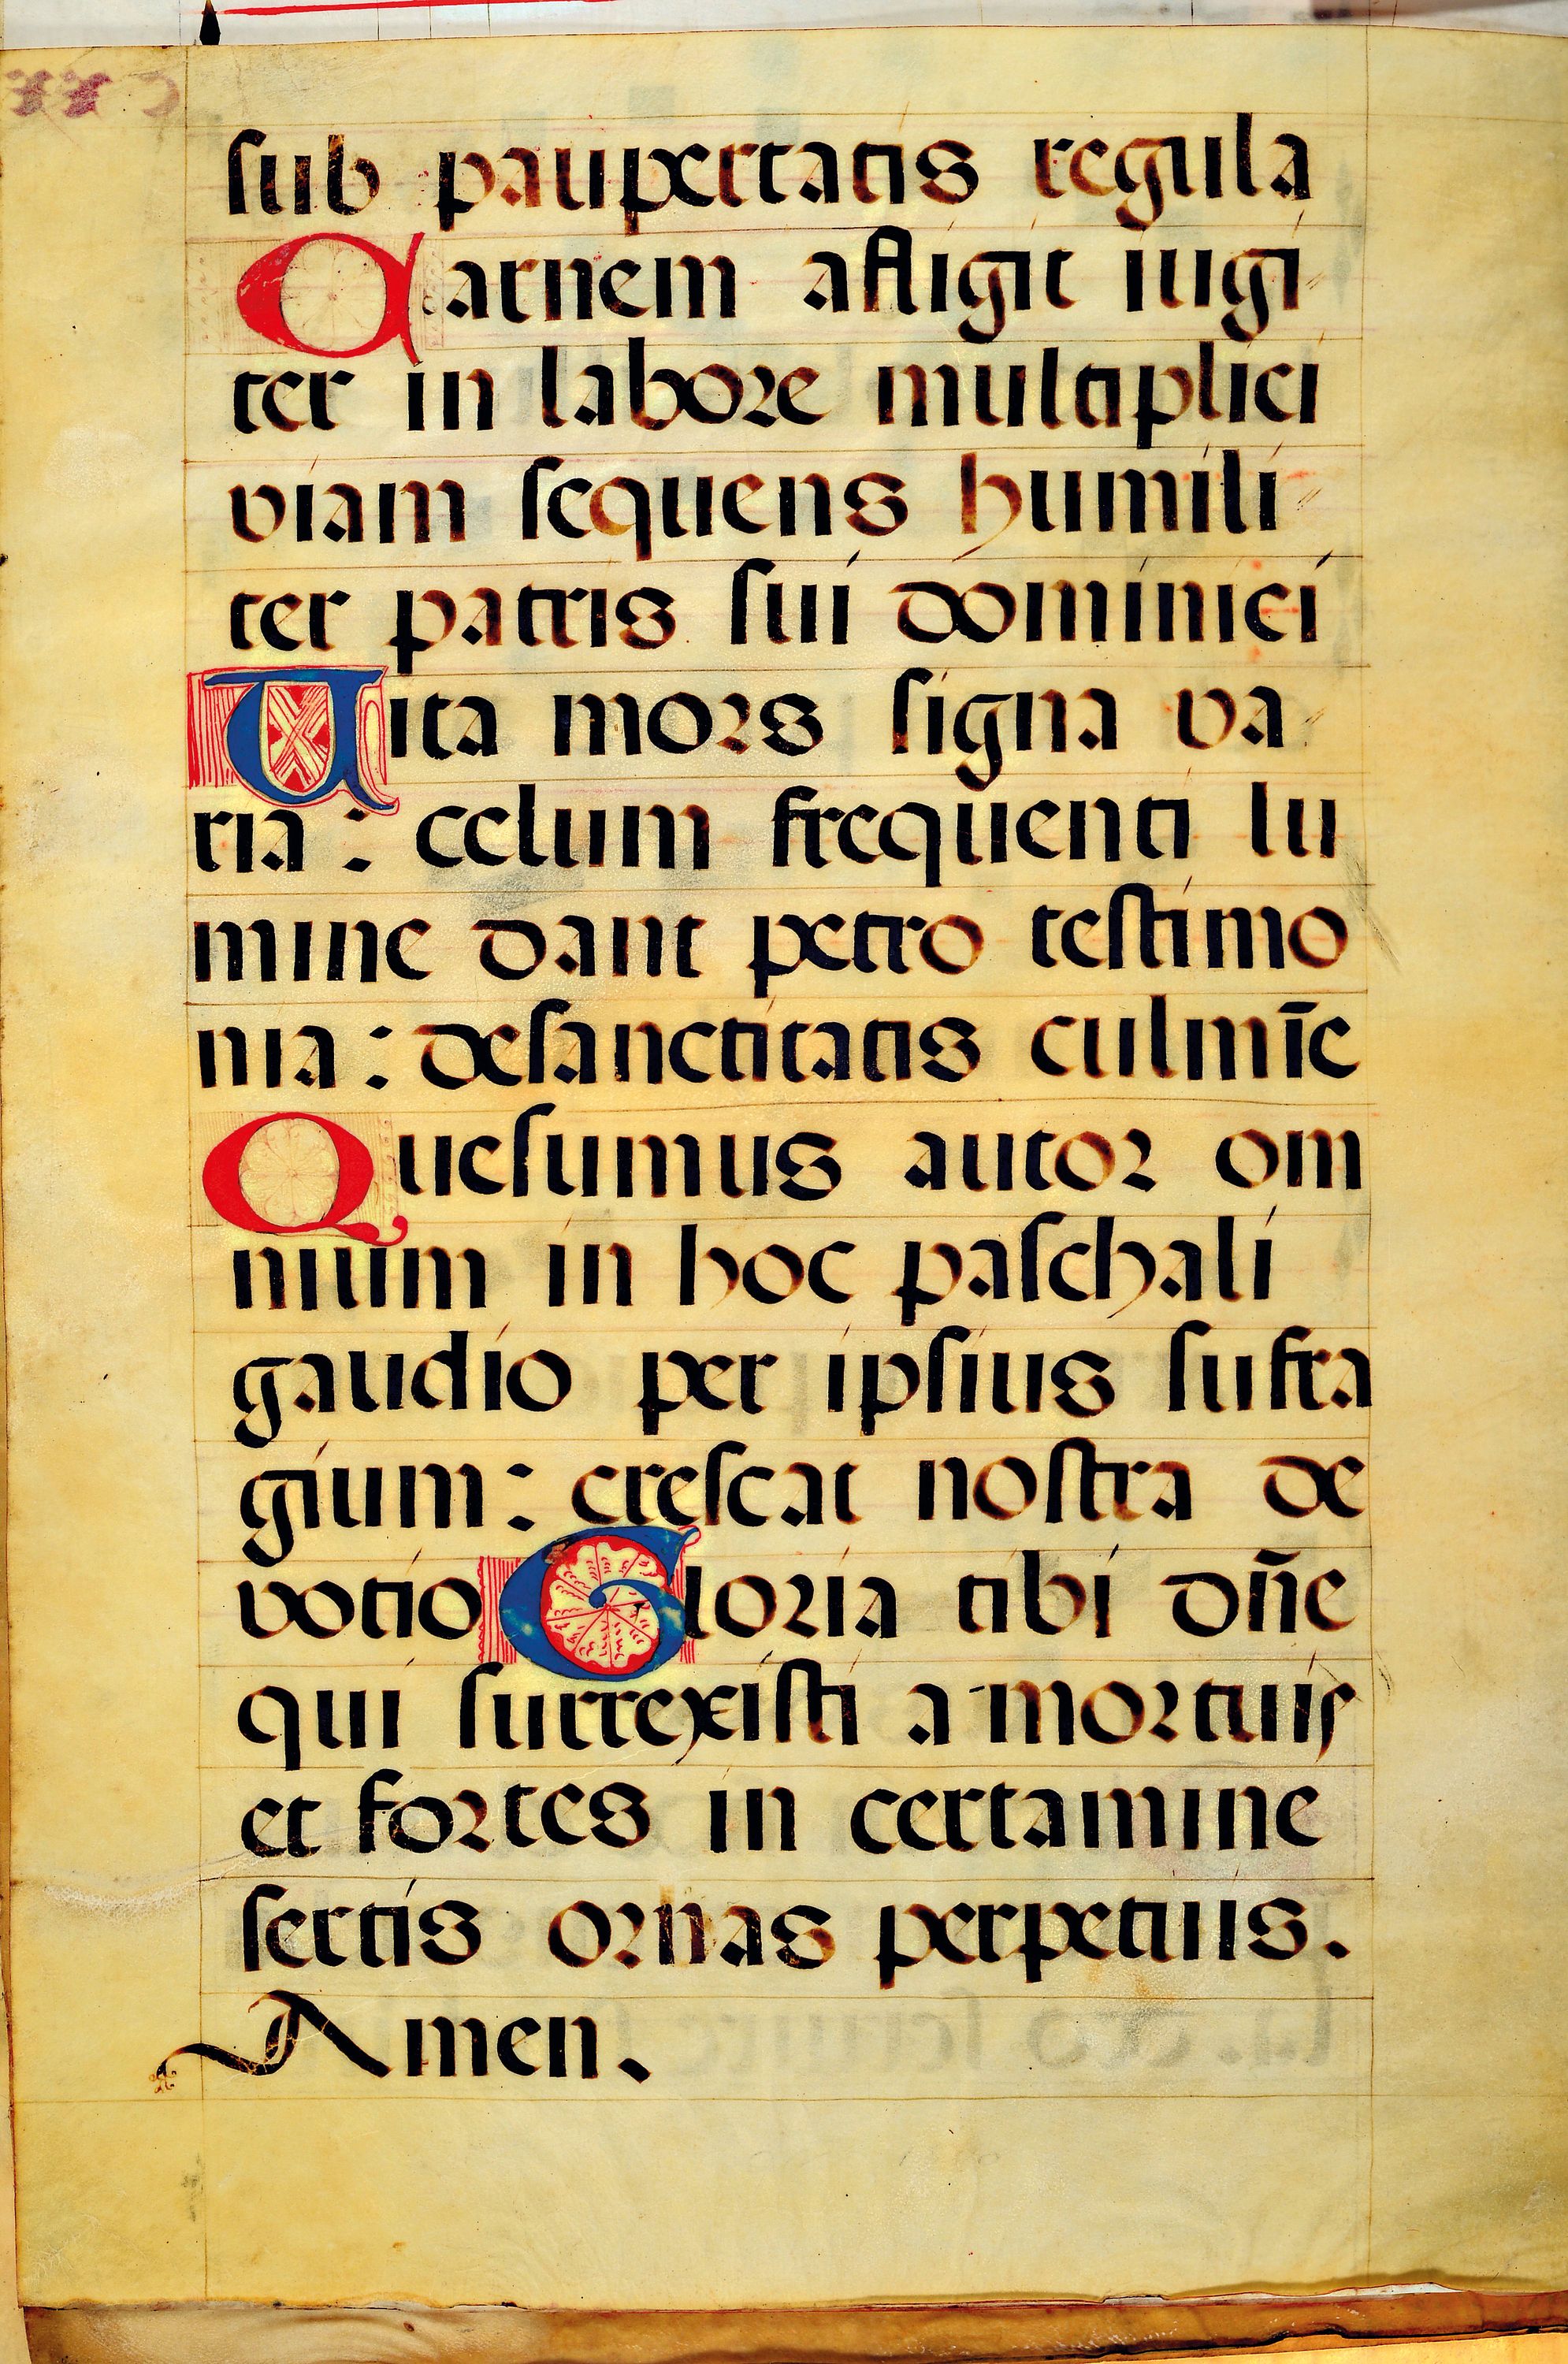 sub paupertatis regula
Carnem afligit iugi⸗
ter in labore multiplici
viam sequens humili⸗
ter patris sui dominici
Uita mors signa va⸗
ria : celum frequenti lu
mine dant petro testimo
nia : desanctitatis culmīe
Quesumus autor om
nium in hoc paschali
gaudio per ipsius sufra
gium : crescat nostra de
votio Gloria tibi dn̄e
qui surrexisti a mortuis
et fortes in certamine
sertis ornas perpetuis.
Amen.